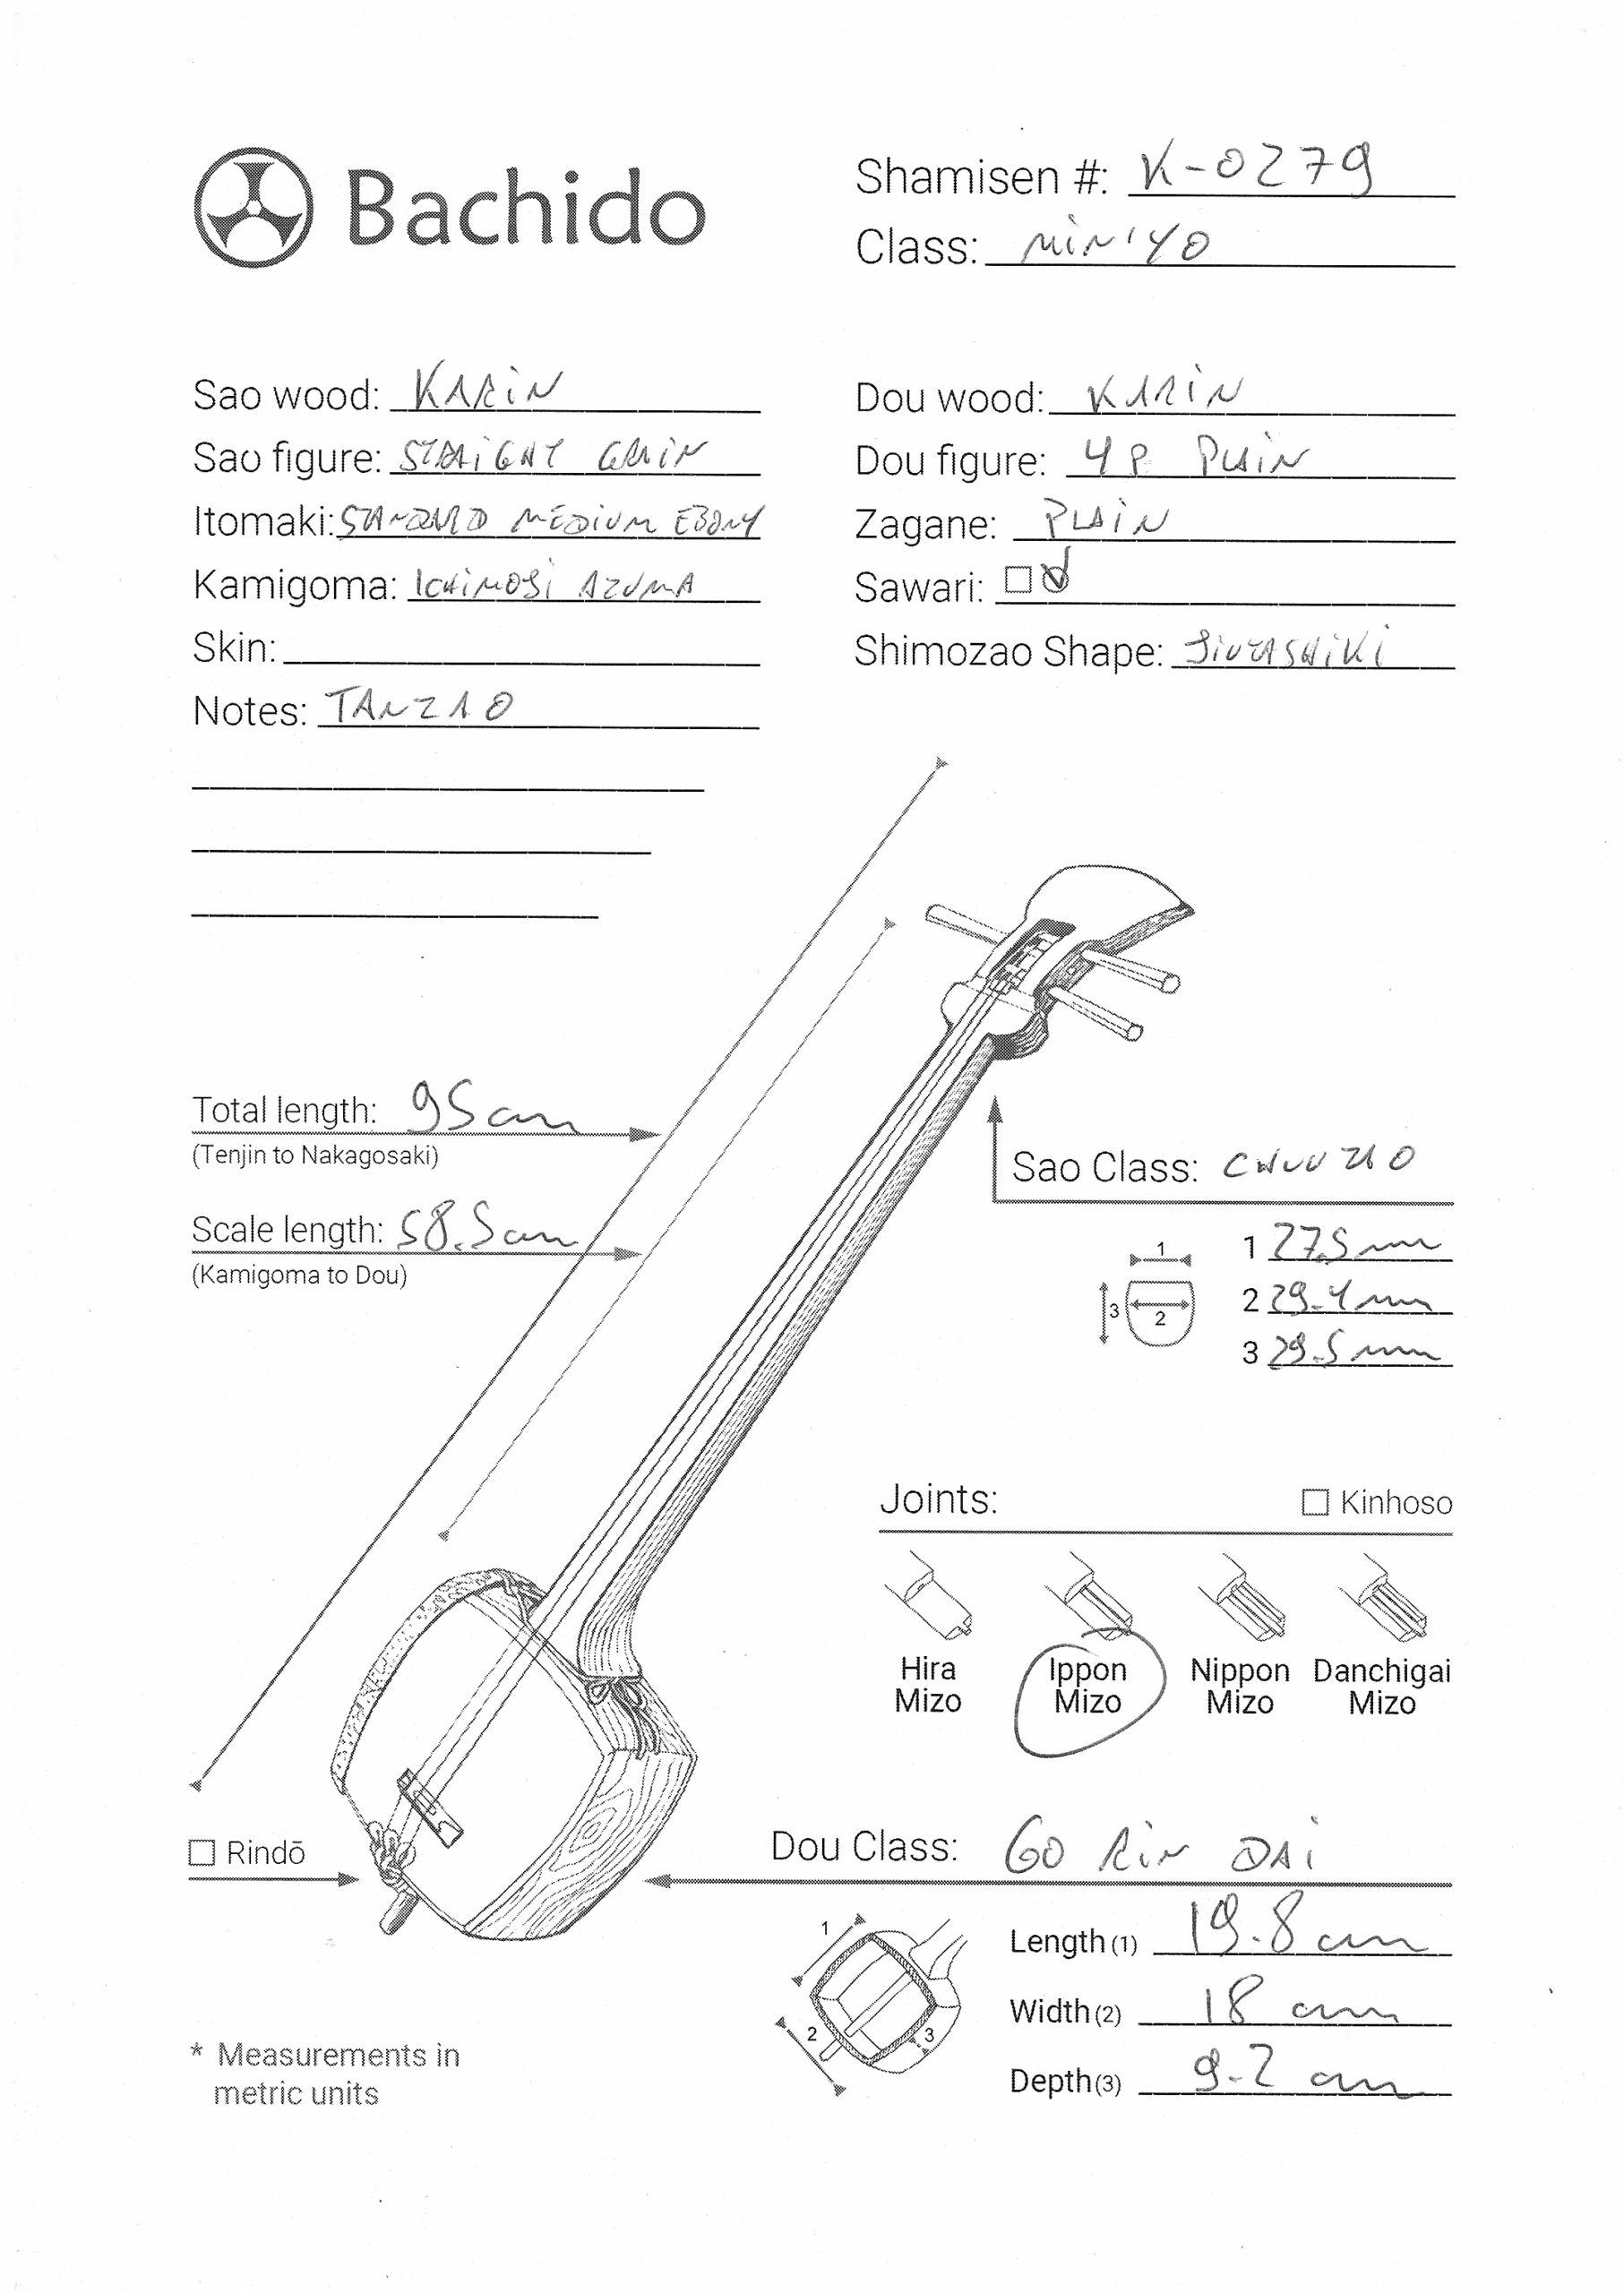 Bachido
Shamisen #: K-0279
Class: MIN'YO
Sao wood: KARIN
Sao figure: STRAIGHT GRAIN
Itomaki: STANDARD MEDIUM EBONY
Kamigoma: ICHIMOJI AZUMA
Skin:
Notes: TANZAO
Dou wood: KARIN
Dou figure: 4P PLAIN
Zagane: PLAIN
Sawari:
Shimozao Shape: JIUTASHIKI
Total length: 95cm
(Tenjin to Nakagosaki)
Scale length: 58.5cm
(Kamigoma to Dou)
Sao Class: CHUUZAO
1
3
2
1 27.5mm
2 29.4mm
3 29.5mm
Joints:
Kinhoso
Hira Mizo
Ippon Mizo
Nippon Mizo
Danchigai Mizo
Rindō
Dou Class: GO RIN DAI
1
2
3
Length(1) 19.8 cm
Width(2) 18 cm
Depth(3) 9.2 cm
* Measurements in
metric units